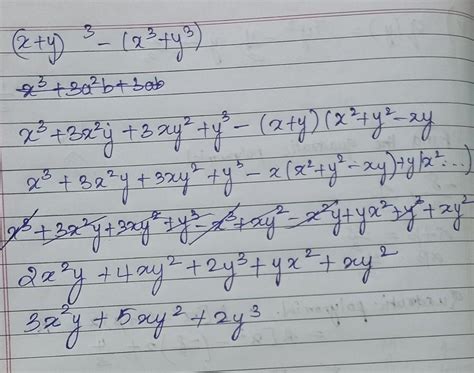 (x+y)³ - (x³+y³)
x³+3a²b+3ab
x³+3x²y+3xy²+y³-(x+y)(x²+y²-xy
x³+3x²y+3xy²+y³-x(x²+y²-xy)+y(x²...)
x³+3x²y+3xy²+y³-x³+xy²-x²y+yx²+y³+xy²
2x²y+4xy²+2y³+yx²+xy²
3x²y+5xy²+2y³